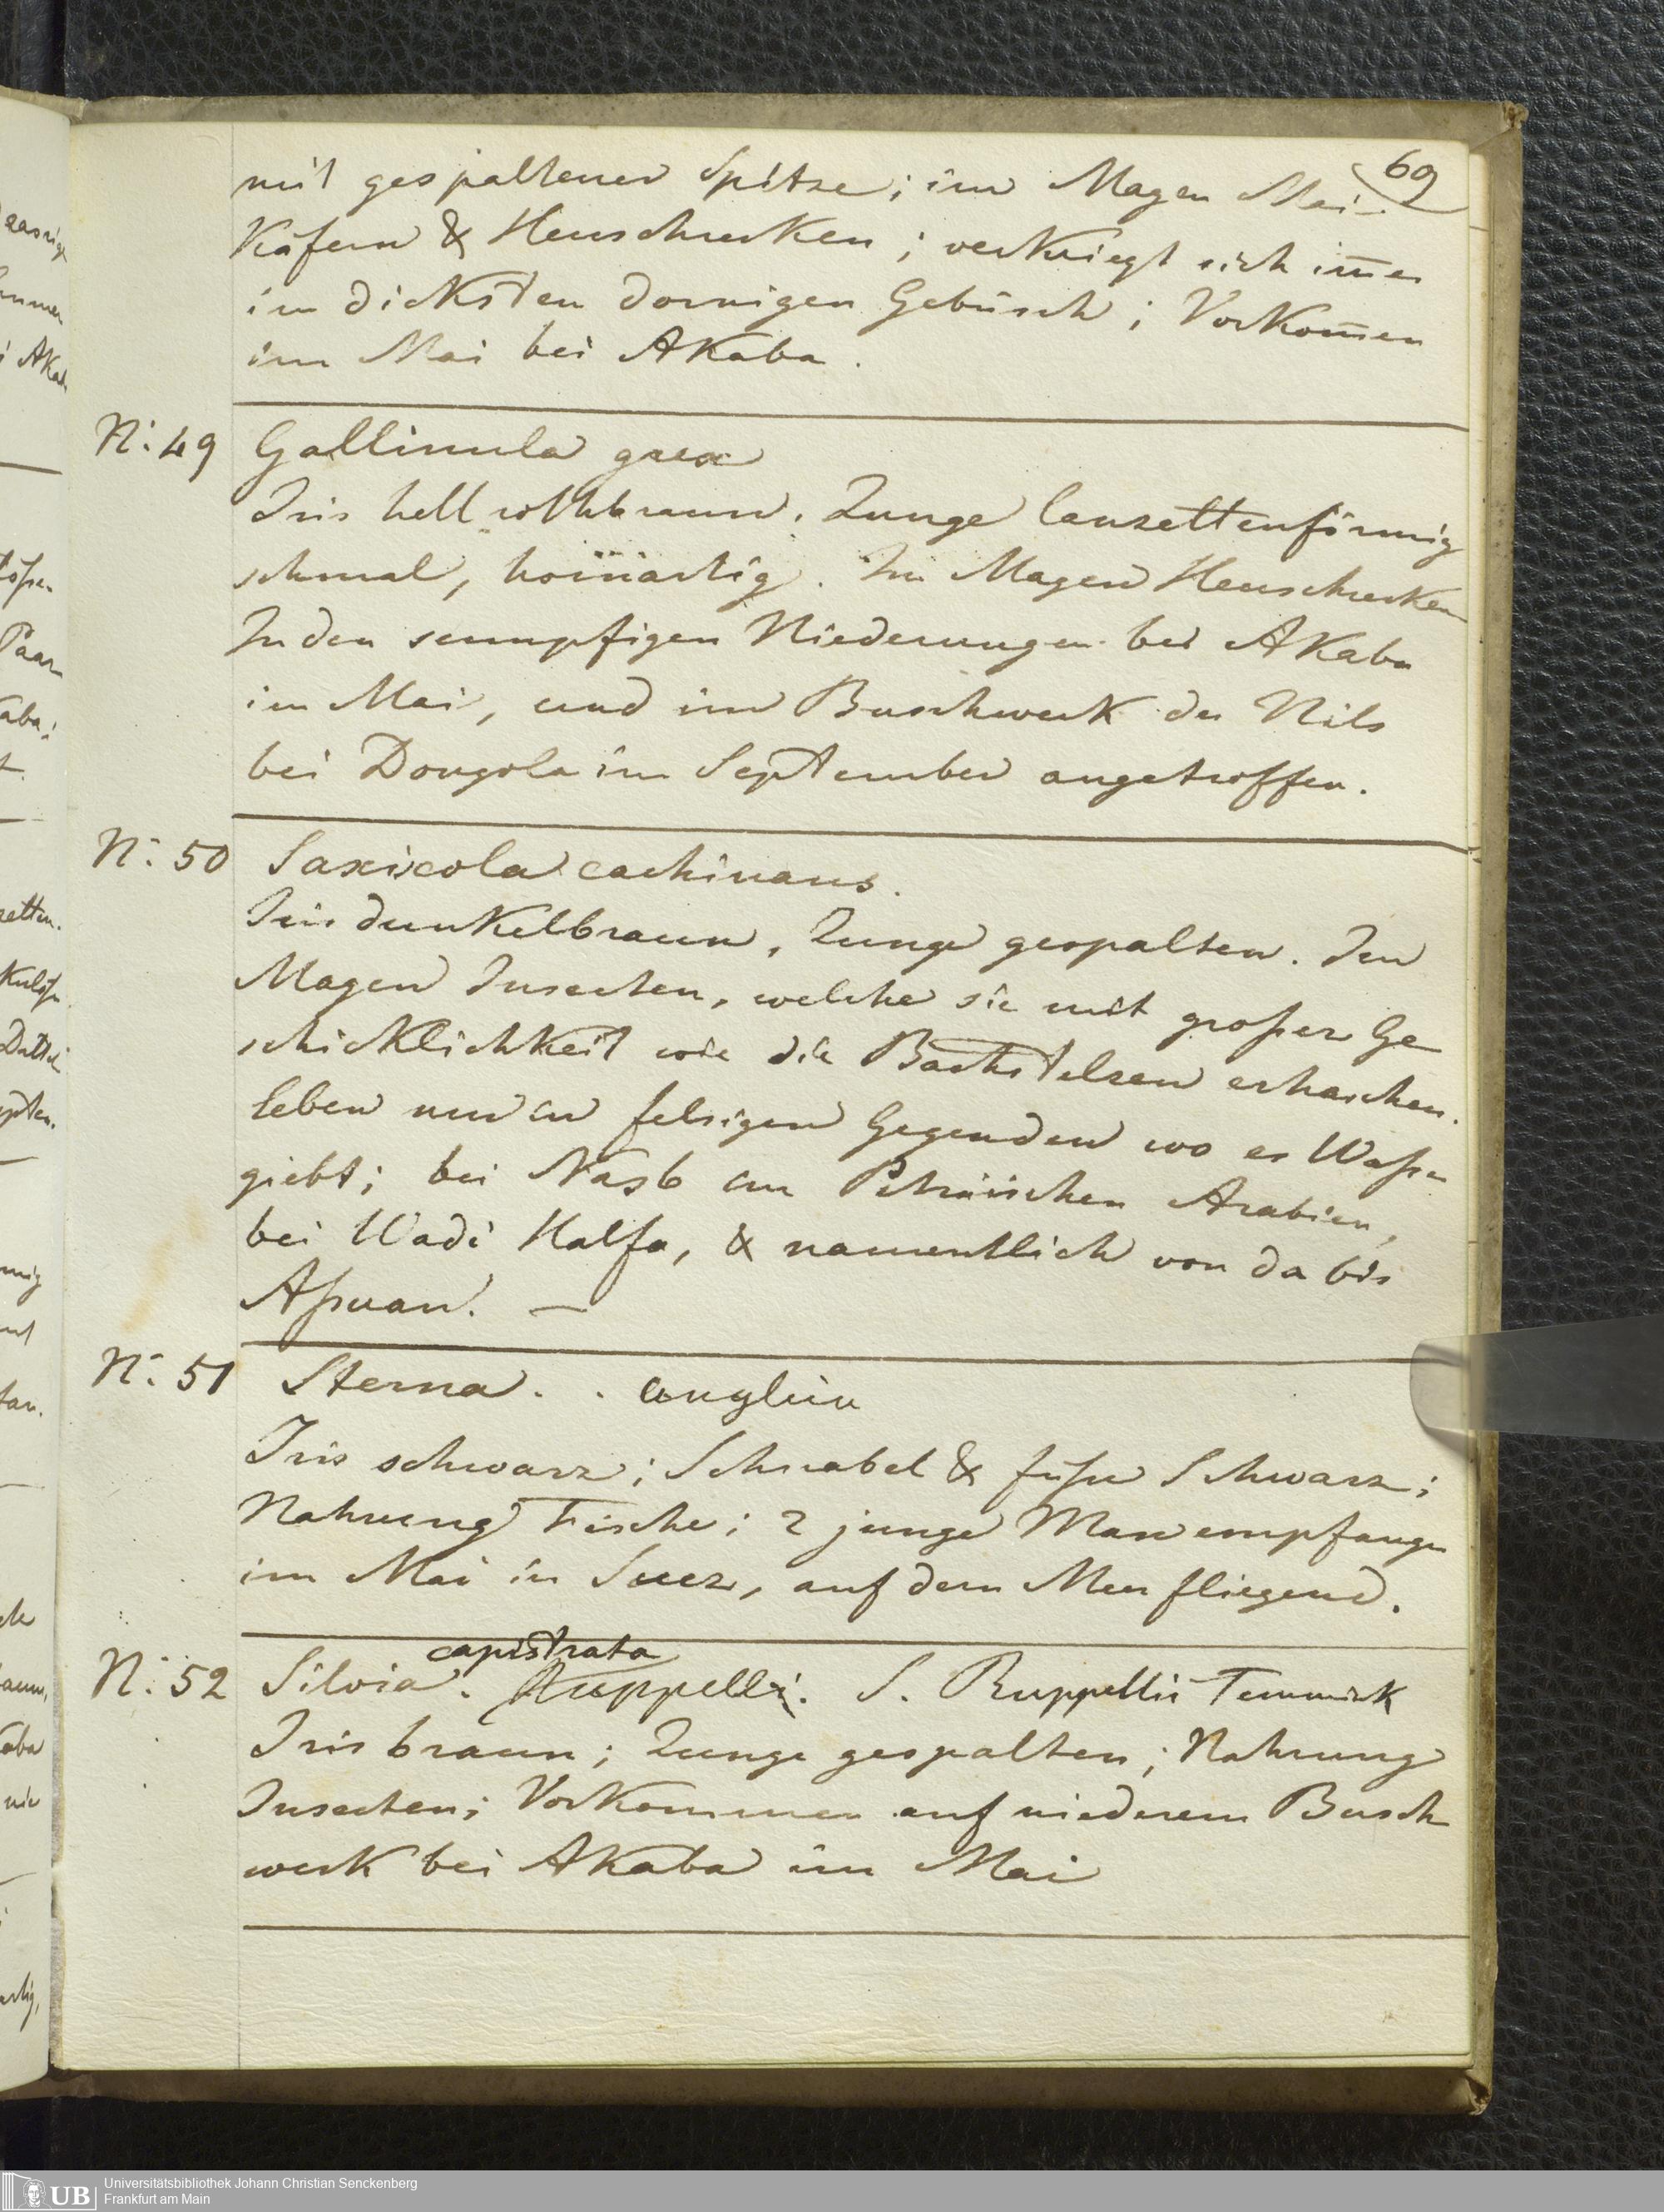 69
mit gespaltener Spitze; im Magen Mai-
Käfern & Heuschrecken; verkriegt sich im̅er
im dicksten dornigen Gebüsch; Vorkom̅en
im Mai bei Akaba.
N: 49 Gallinula grex
Iris hell rothbraun. Zunge lanzettenförmig
schmal, hornartig. Im Magen Heuschrecken
In den sumpfigen Niederungen bei Akaba
im Mai, und im Buschwerk des Nils
bei Dongola im September angetroffen.
N: 50 Saxicola cachinans.
Iris dunkelbraun, Zunge gespalten. Im
Magen Insecten, welche sie mit großer Ge
schicklichkeit wie die Bachstelzen erhaschen.
leben nur in felsigen Gegenden wo es Waßer
giebt; bei Nasb im Peträischen Arabien,
bei Wadi Halfa, & namentlich von da bis
Aßuan. —
N: 51 Sterna . . anglica
Iris schwarz; Schnabel & füße Schwarz;
Nahrung Fische; 2 junge empfangen
im Mai in Suez, auf dem Meer fliegend.
capistrata
N: 52 Silvia. Ruppelli. S. Ruppellii Temmick
Iris braun; Zunge gespalten; Nahrung
Insecten; Vorkommen auf niederem Busch
werk bei Akaba im Mai
UB Universitätsbibliothek Johann Christian Senckenberg
Frankfurt am Main